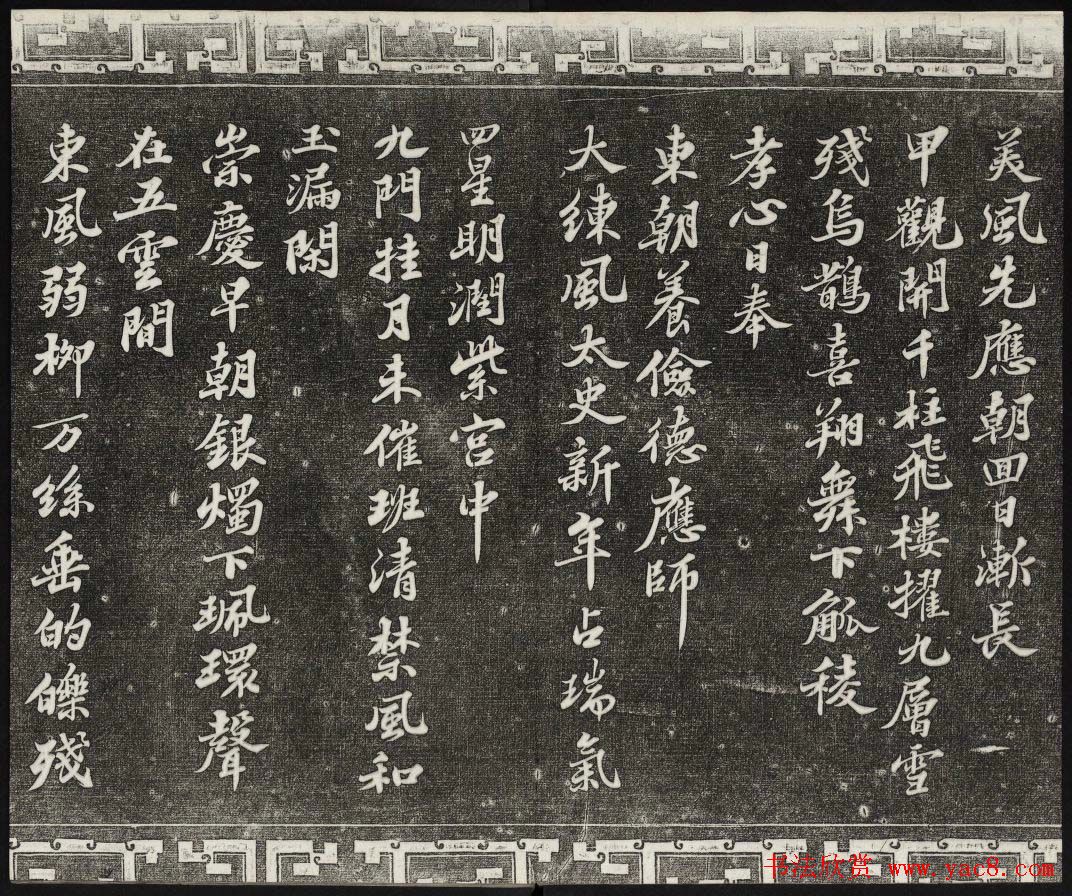 美風先應朝回日漸長
甲觀開千柱飛樓擢九層雪
殘烏鵲喜翔舞下觚稜
孝心日奉
東朝養儉德應師
大練風太史新年占瑞氣
四星明潤紫宮中
九門挂月未催班清禁風和
玉漏閑
崇慶早朝銀燭下珮環聲
在五雲間
東風弱柳万絲垂的皪殘
书法欣赏 www.yac8.com